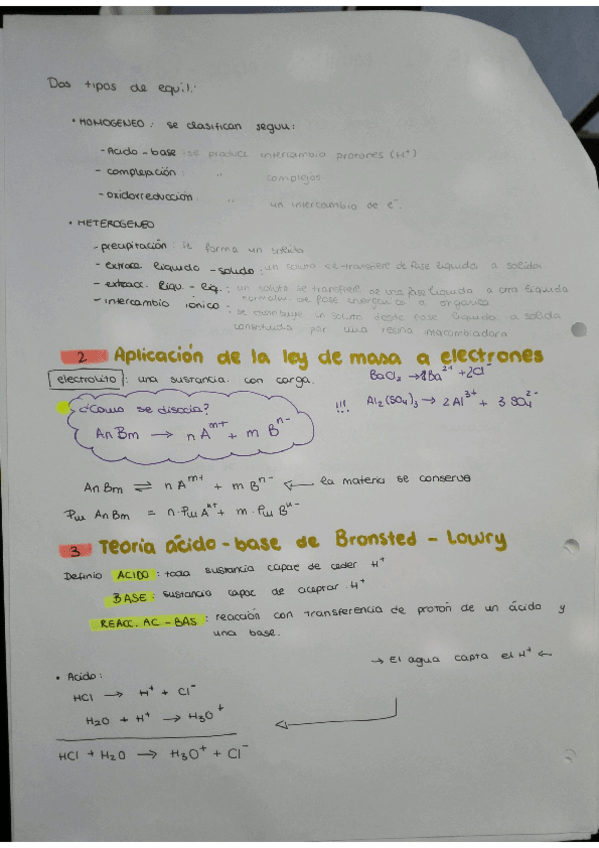 Dos tipos de equil.:
• HOMOGENEO: se clasifican segun:
- Acido - base: se produce intercambio protones (H⁺)
- complejación: " complejos
- oxidorreducción " un intercambio de e⁻.
• HETEROGENEO
- precipitación: se forma un solido
- extracc. liquido - solido: un soluto se transfiere de fase liquida a solida
- extracc. liqu. - liq.: un soluto se transfiere de una fase liquida a otra liquida
normalm. de fase inorganica a organica
- intercambio iónico: se distribuye un soluto desde fase liquida a solida
constituida por una resina
2 Aplicación de la ley de masa a electrones
electrolito: una sustancia con carga. BaCl₂ → Ba²⁺ + 2Cl⁻
¿Como se disocia? !!! Al₂(SO₄)₃ → 2Al³⁺ + 3SO₄²⁻
AnBm → nAᵐ⁺ + mBⁿ⁻
AnBm ⇌ nAᵐ⁺ + mBⁿ⁻ ← la materia se conserva
Pm AnBm = n·Pm A + m·Pm Bⁿ⁻
3 Teoría ácido-base de Bronsted - Lowry
Definio ACIDO: toda sustancia capaz de ceder H⁺
BASE: sustancia capaz de aceptar H⁺
REACC. AC - BAS: reacción con transferencia de protón de un ácido y
una base.
→ El agua capta el H⁺ ←
• Acido:
HCl → H⁺ + Cl⁻
H₂O + H⁺ → H₃O⁺
HCl + H₂O → H₃O⁺ + Cl⁻